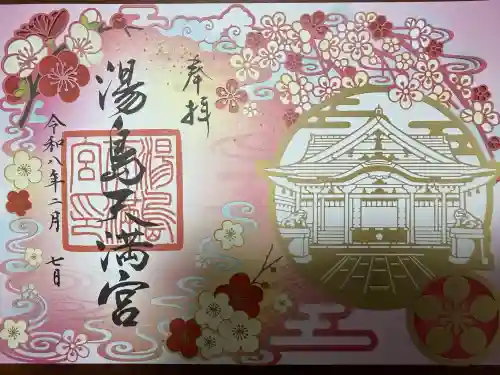 奉拝
湯島天満宮
湯島天満宮印
令和八年二月七日